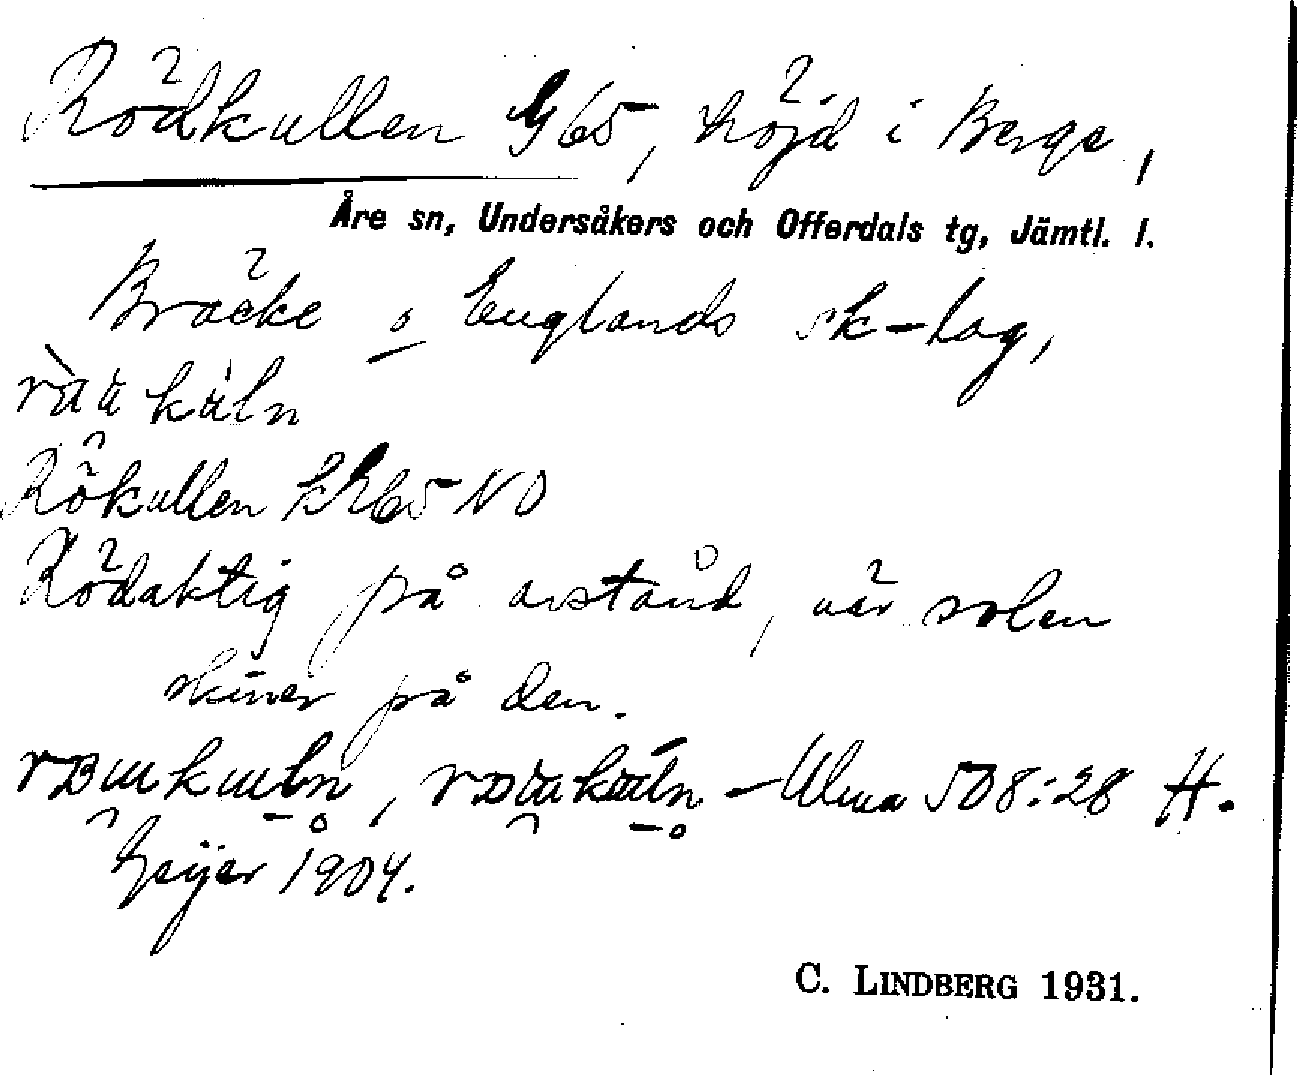 Rödkullen G65, höjd i Berge,
Åre sn, Undersåkers och Offerdals tg, Jämtl. l.
Bräcke o Englands sk-lag,
Rökullen kR65 NO
Rödaktig på avstånd, när solen
skiner på den.
— Ulma 508:28 H.
Geijer 1904.
C. LINDBERG 1931.